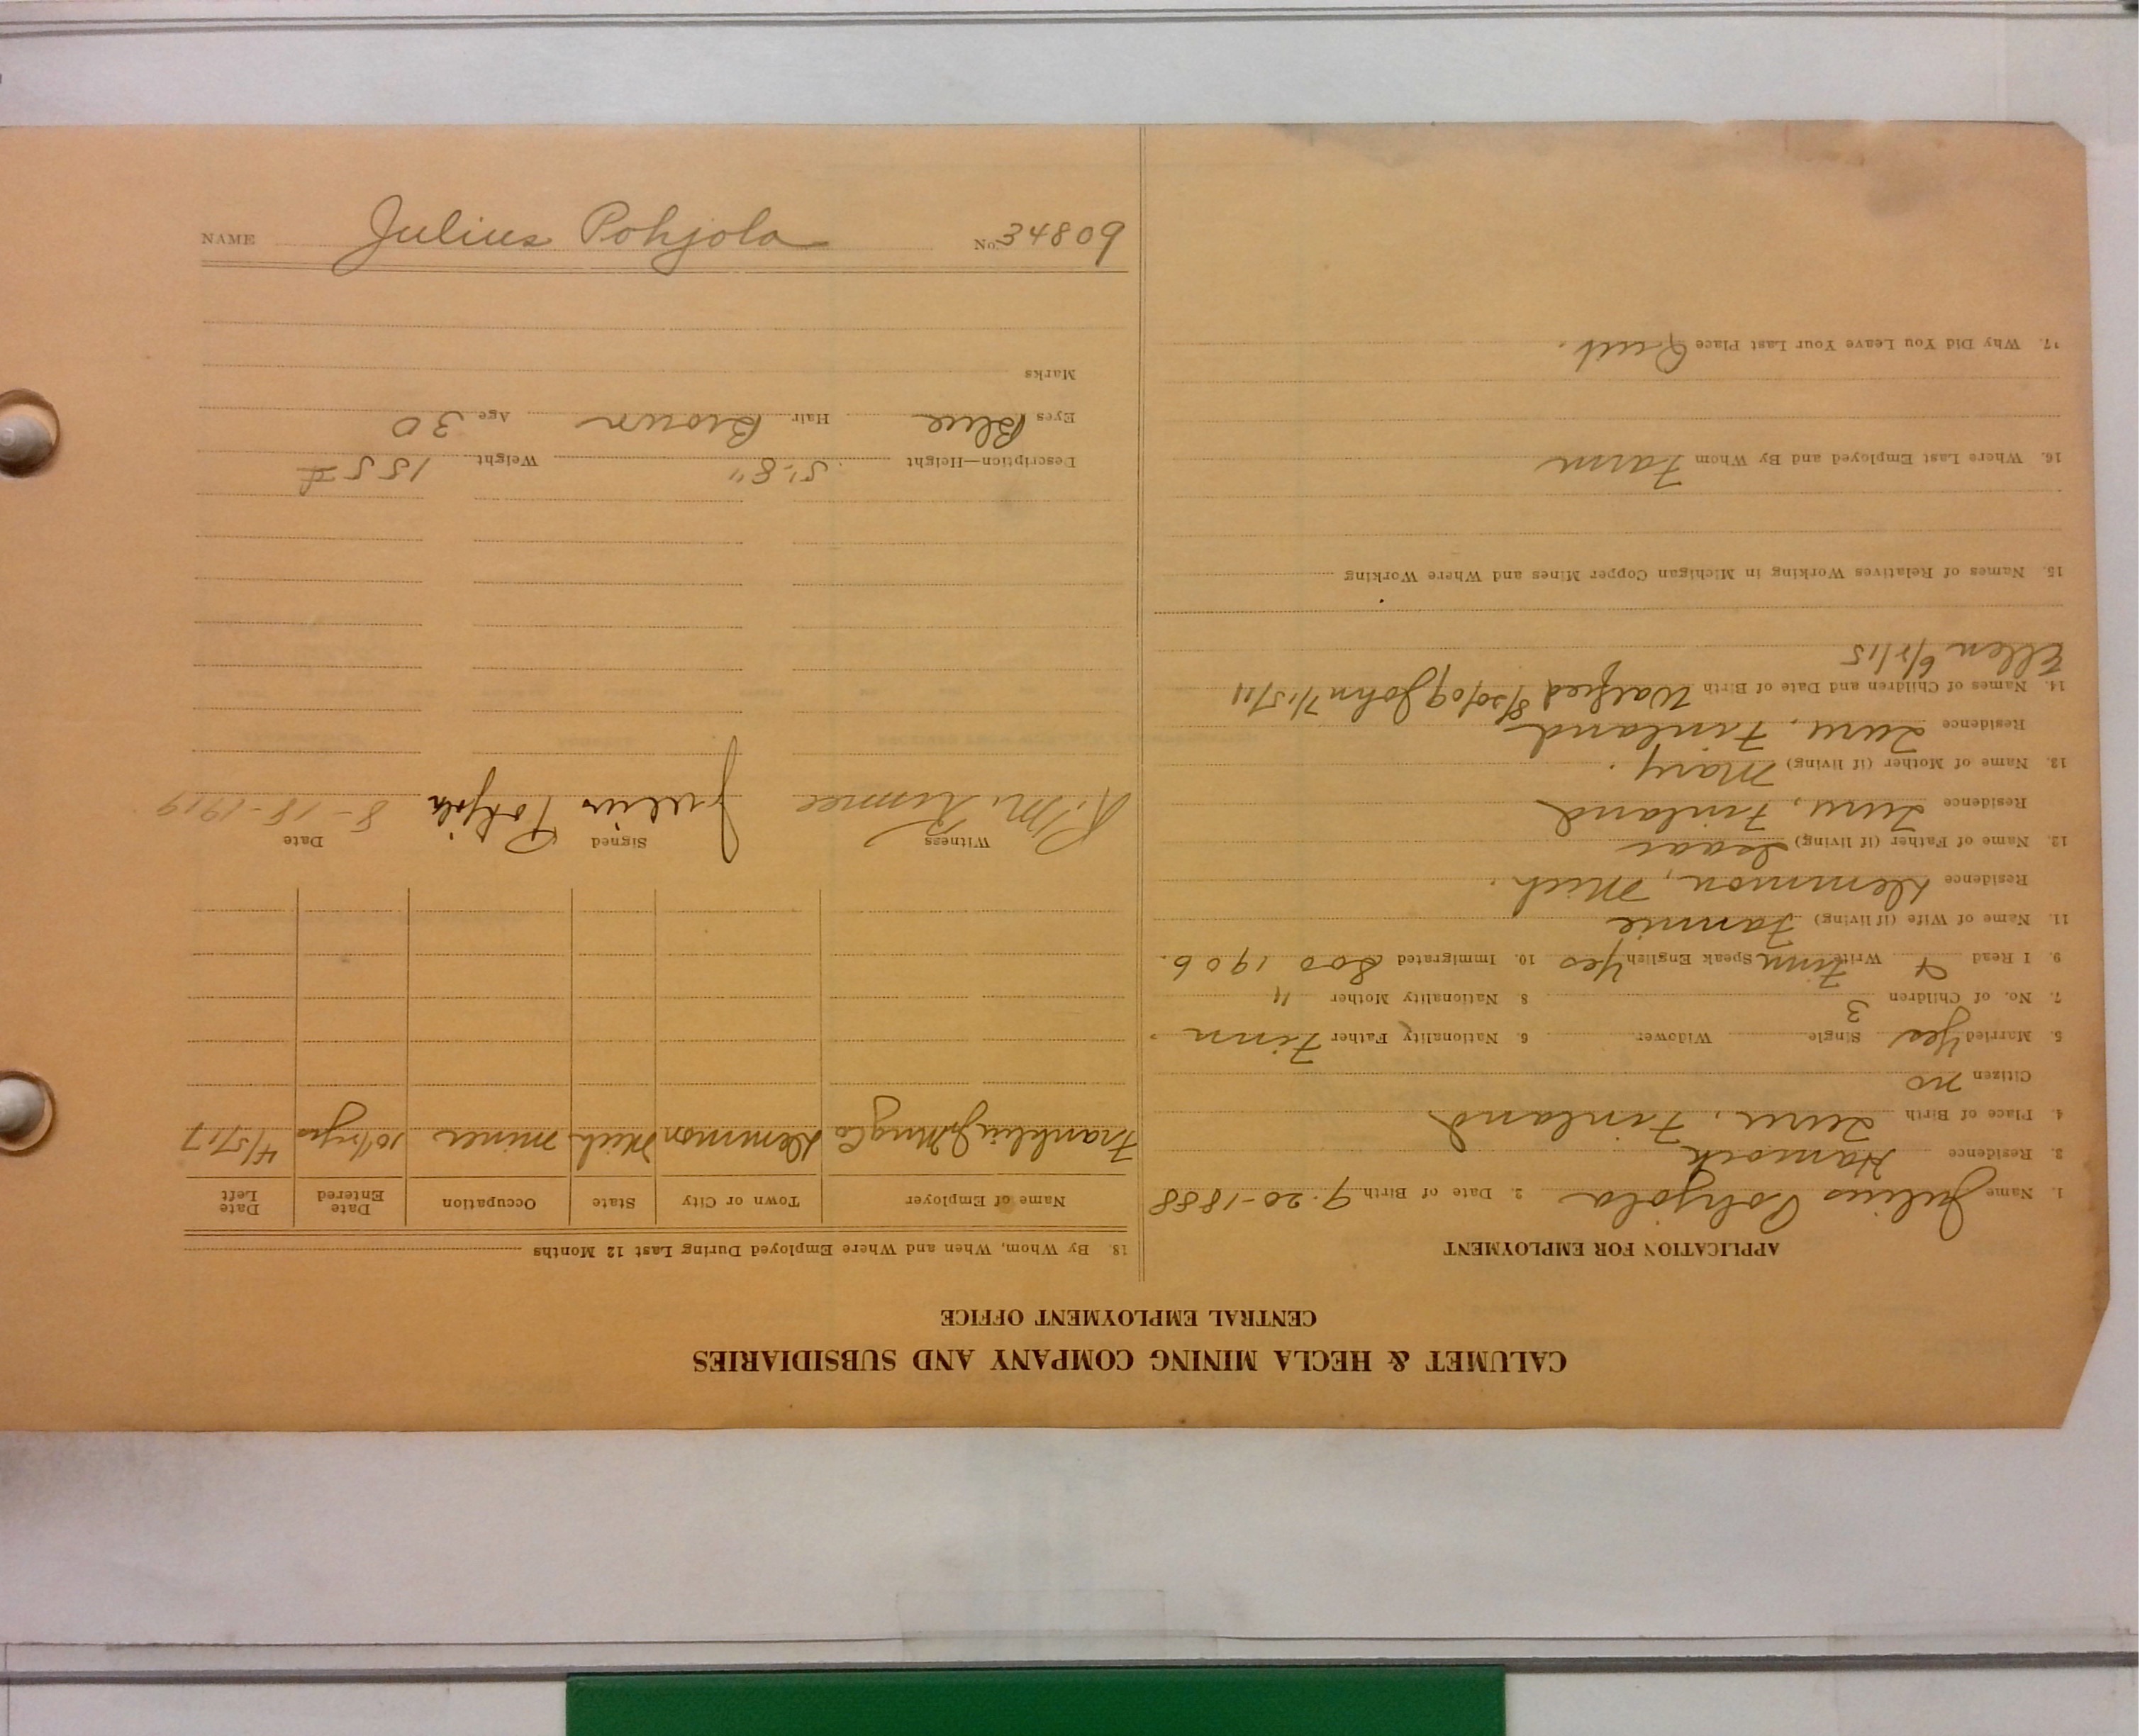 CALUMET & HECLA MINING COMPANY AND SUBSIDIARIES
CENTRAL EMPLOYMENT OFFICE
APPLICATION FOR EMPLOYMENT
1. Name Julius Pohjola 2. Date of Birth 9-20-1888
3. Residence Hancock
4. Place of Birth Finland
Citizen no
5. Married Yes Single Widower 6. Nationality Father Finn
7. No. of Children 3 8 Nationality Mother "
9. I Read & Write Finn Speak English Yes 10. Immigrated Soo 1906.
11. Name of Wife (if living) Fannie
Residence Demmon, Mich.
12. Name of Father (if living) Isaac
Residence Finland
13. Name of Mother (if living) Mary.
Residence Finland
14. Names of Children and Date of Birth Walfred 8/30/09 John 7/15/11
Ellen 6/5/15
15. Names of Relatives Working in Michigan Copper Mines and Where Working
16. Where Last Employed and By Whom Farm
17. Why Did You Leave Your Last Place Quit.
18. By Whom, When and Where Employed During Last 12 Months
Name of Employer Town or City State Occupation Date Entered Date Left
Franklin Jr Mng Co Demmon Mich miner 4/5/17
Witness Signed Date
R. M. Julius Pohjola 8-18-1919
Description—Height 5'-8" Weight 155 #
Eyes Blue Hair Brown Age 30
Marks
NAME Julius Pohjola No. 34809